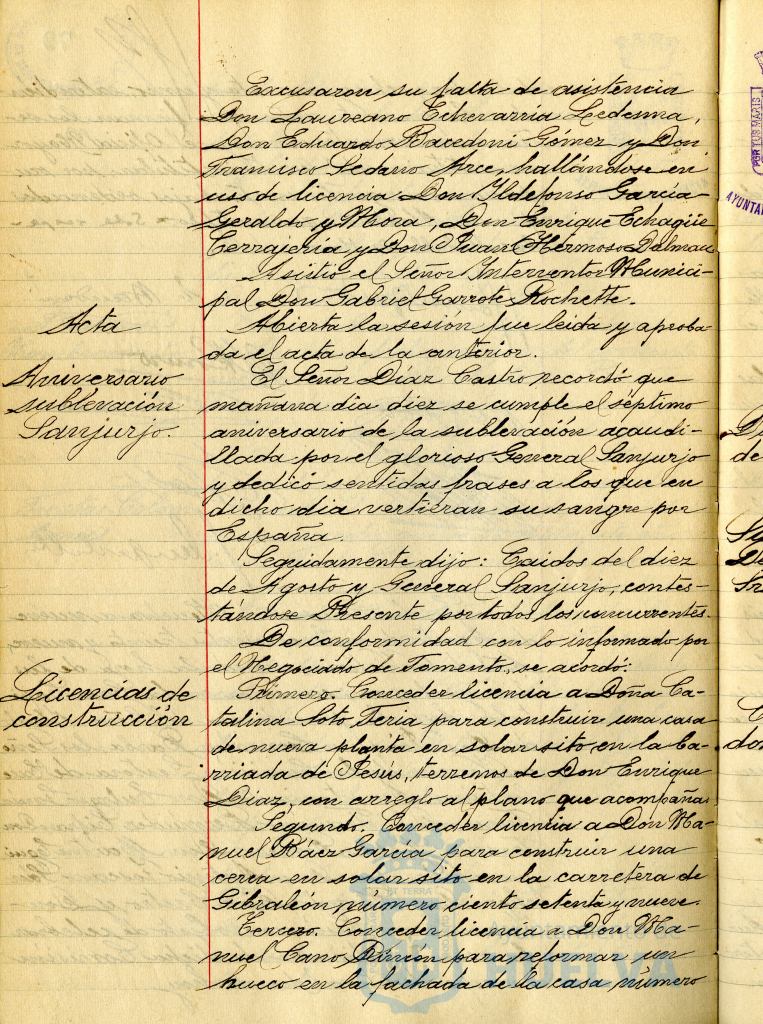 Excusaron su falta de asistencia
Don Laureano Echevarría Ledesma,
Don Eduardo Bacedoni Gómez y Don
Francisco Sedano Arce, hallándose en
uso de licencia Don Ildefonso García
Geraldo y Mora, Don Enrique Echagüe
Cerrajería y Don Juan Hermoso Dalmau
Asistió el Señor Interventor Munici-
pal Don Gabriel Garrote Rochette.
Acta
Abierta la sesión fue leida y aproba-
da el acta de la anterior.
Aniversario
sublevación
Sanjurjo.
El Señor Díaz Castro recordó que
mañana dia diez se cumple el séptimo
aniversario de la sublevación acaudi-
llada por el glorioso General Sanjurjo
y dedicó sentidas frases a los que en
dicho dia vertieran su sangre por
España.
Seguidamente dijo: Caidos del diez
de Agosto y General Sanjurjo, contes-
tándose Presente por todos los concurrentes.
De conformidad con lo informado por
el Negociado de Fomento, se acordó:
Licencias de
construcción
Primero. Conceder licencia a Doña Ca-
talina Soto Feria para construir una casa
de nueva planta en solar sito en la ba-
rriada de Jesús, terrenos de Don Enrique
Diaz, con arreglo al plano que acompaña.
Segundo. Conceder licencia a Don Ma-
nuel Báez García para construir una
cerca en solar sito en la carretera de
Gibraleón, número ciento setenta y nueve.
Tercero. Conceder licencia a Don Ma-
nuel Cano Rincón para reformar un
hueco en la fachada de la casa número
HUELVA
POR TUS MARIS
AYUNTA